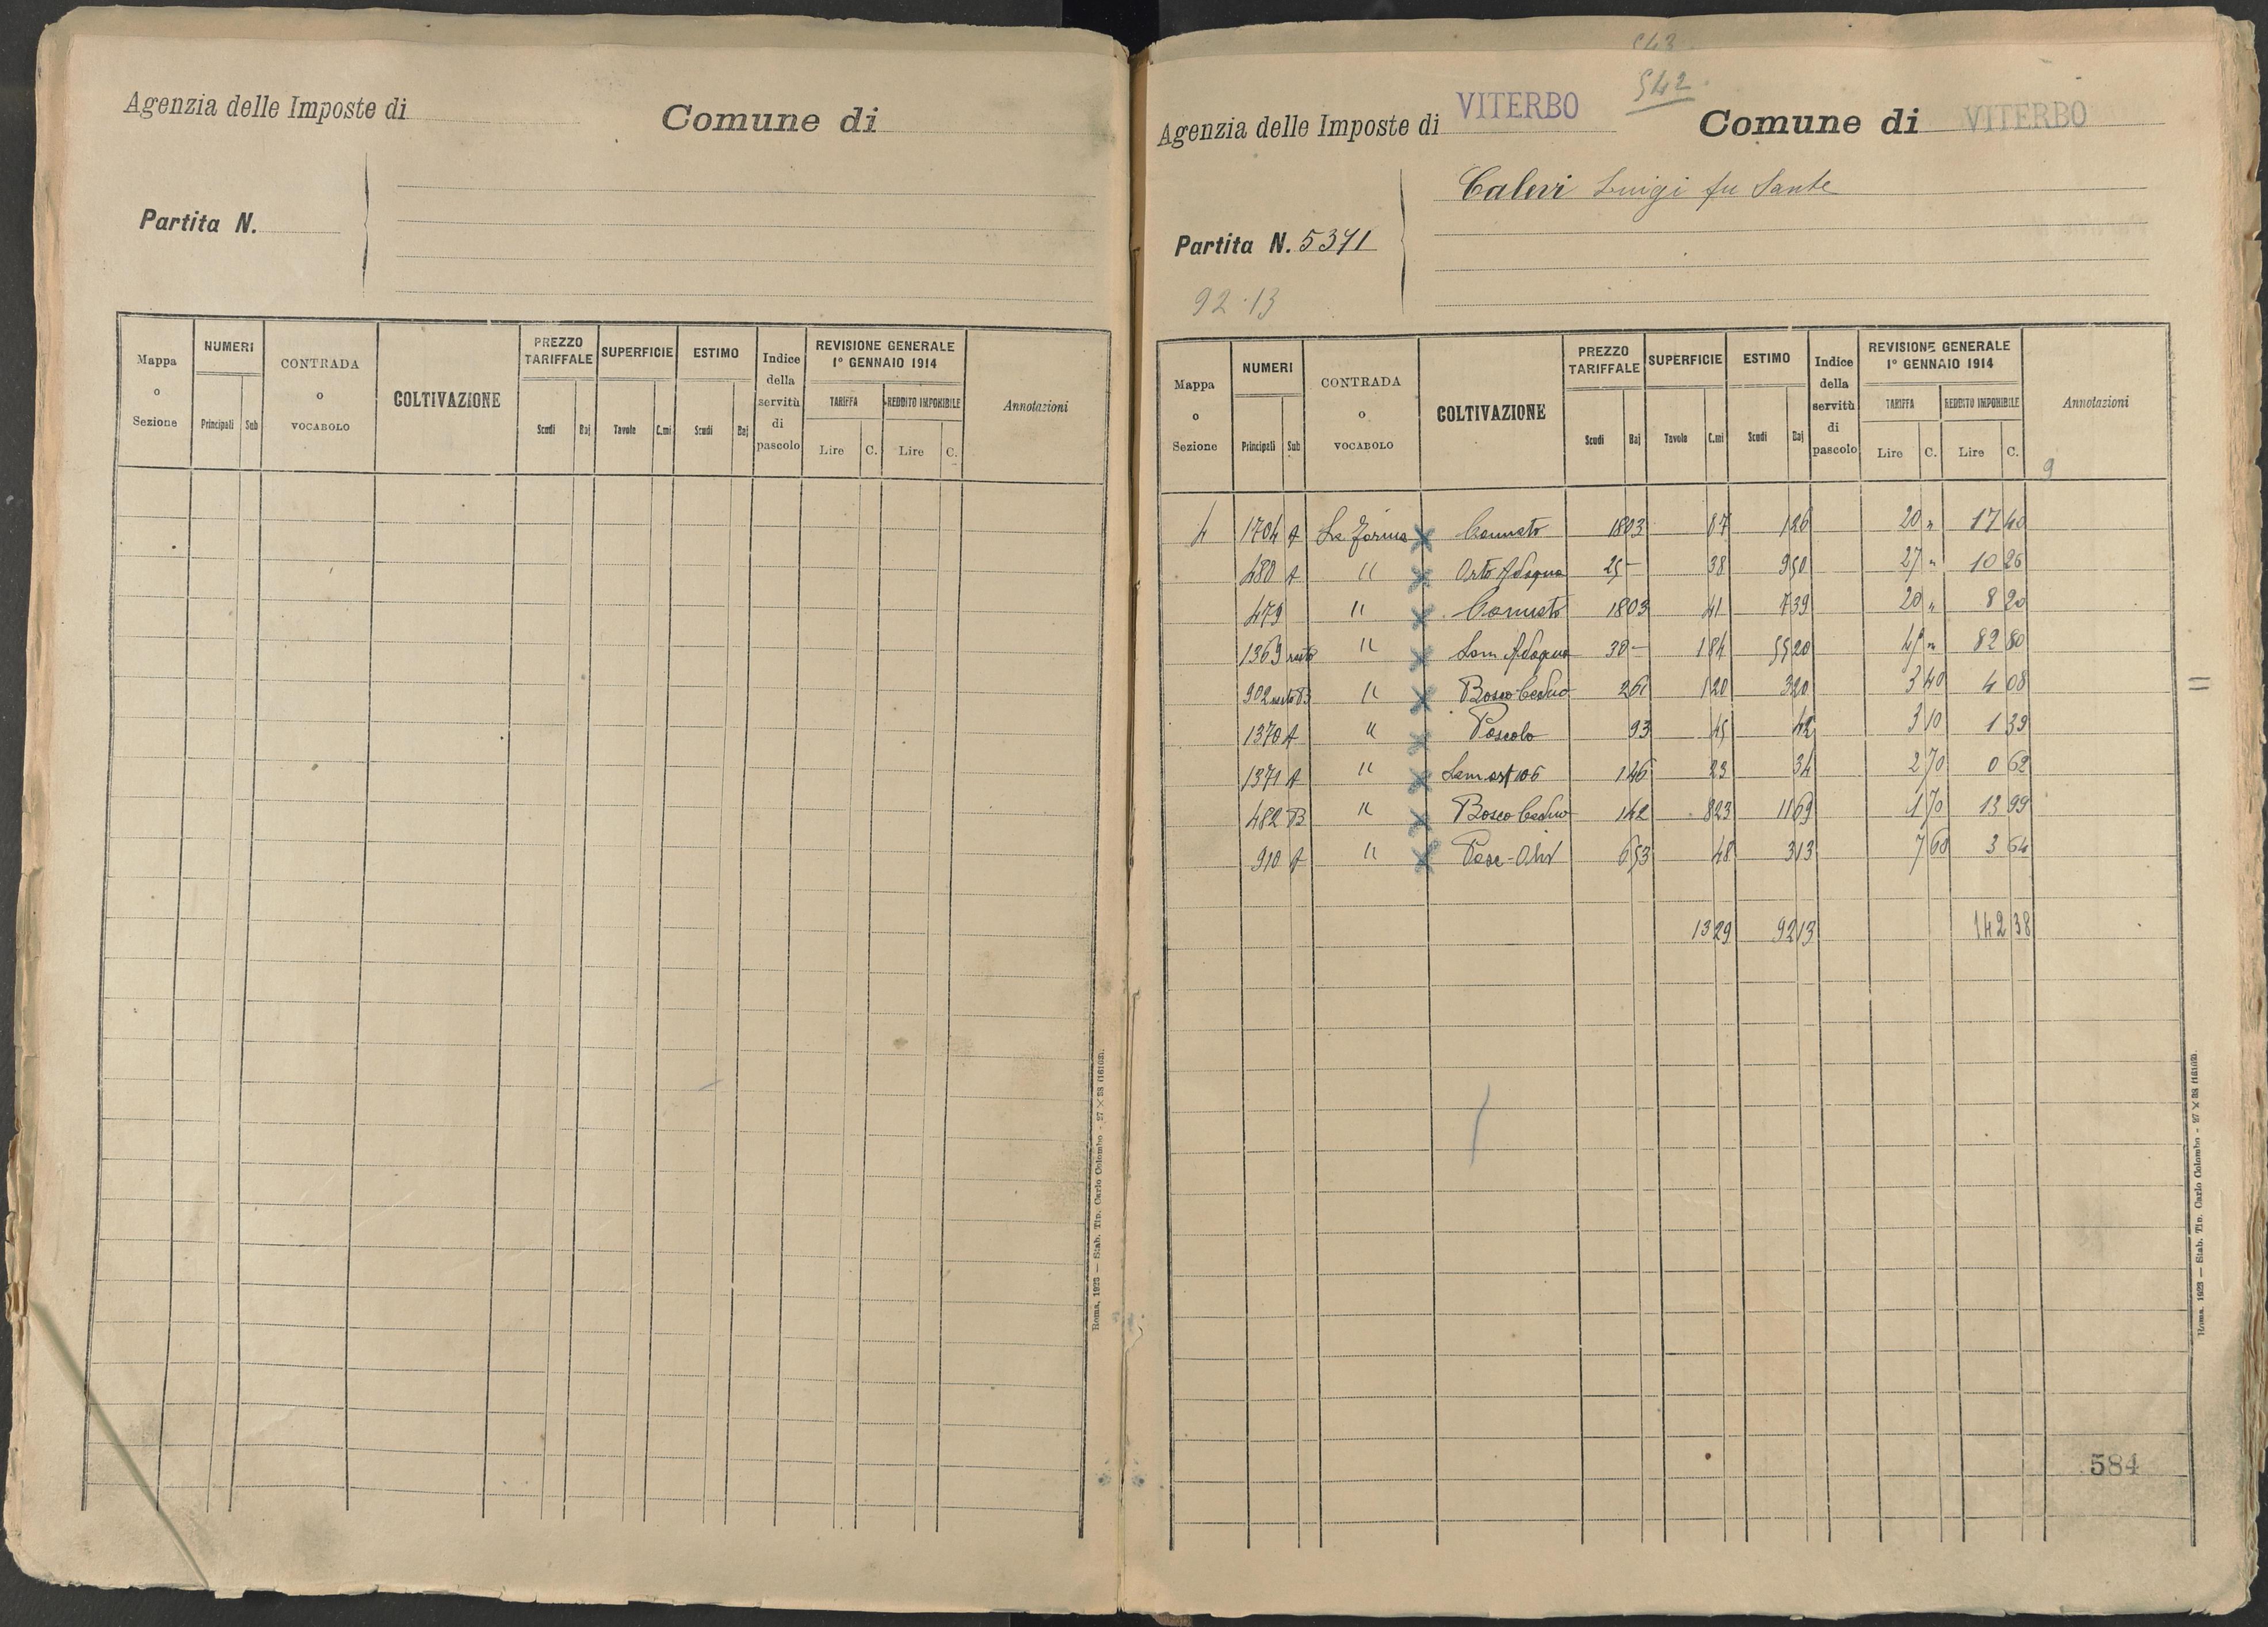 Agenzia delle Imposte di
Comune di
Partita N.
Mappa o Sezione
NUMERI
Principali Sub
CONTRADA o VOCABOLO
COLTIVAZIONE
PREZZO TARIFFALE
Scudi Baj
SUPERFICIE
Tavole C.mi
ESTIMO
Scudi Baj
Indice della servitù di pascolo
REVISIONE GENERALE
1° GENNAIO 1914
TARIFFA
Lire C.
REDDITO IMPONIBILE
Lire C.
Annotazioni
Roma, 1923 — Stab. Tip. Carlo Colombo - 27 × 38
542
Agenzia delle Imposte di VITERBO
Comune di VITERBO
Calevi Luigi fu Sante
Partita N. 5371
92.13
Mappa o Sezione
NUMERI
Principali Sub
CONTRADA o VOCABOLO
COLTIVAZIONE
PREZZO TARIFFALE
Scudi Baj
SUPERFICIE
Tavole C.mi
ESTIMO
Scudi Baj
Indice della servitù di pascolo
REVISIONE GENERALE
1° GENNAIO 1914
TARIFFA
Lire C.
REDDITO IMPONIBILE
Lire C.
Annotazioni
9
4 1704 A La × 1803 87 126 20 " 17 40
480 A " × Orto Adaqua 25 – 38 950 27 " 10 26
479 " × 1803 41 739 20 " 8 20
1369 resto " × Sem Adaqua 30 – 184 5520 45 " 82 80
902 resto B " × Bosco Ceduo 261 120 320 3 40 4 08
1370 A " × Pascolo 93 45 42 3 10 1 39
1371 A " × 146 23 34 2 70 0 62
482 B " × Bosco Ceduo 142 823 1169 1 70 13 99
910 A " × Pasc-Oliv 653 48 313 7 60 3 64
1329 9213 142 38
584
Roma, 1923 — Stab. Tip. Carlo Colombo - 27 × 38